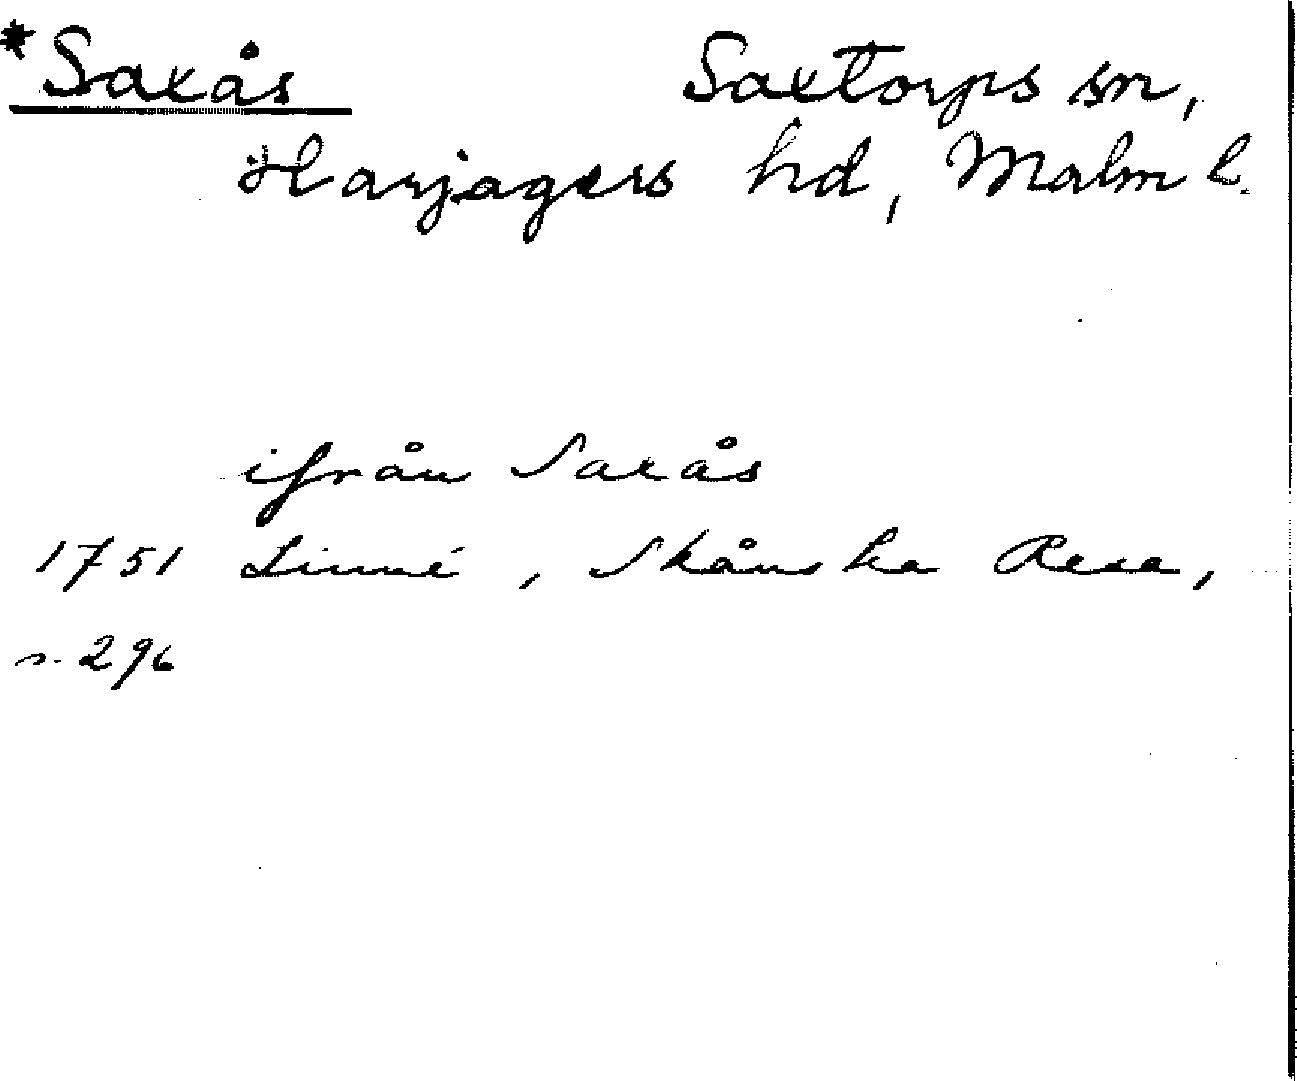 *Saxås Saxtorps sn,
Harjagers hd, Malm l.
ifrån Saxås
1751 Linné, Skånska Resa,
s. 296